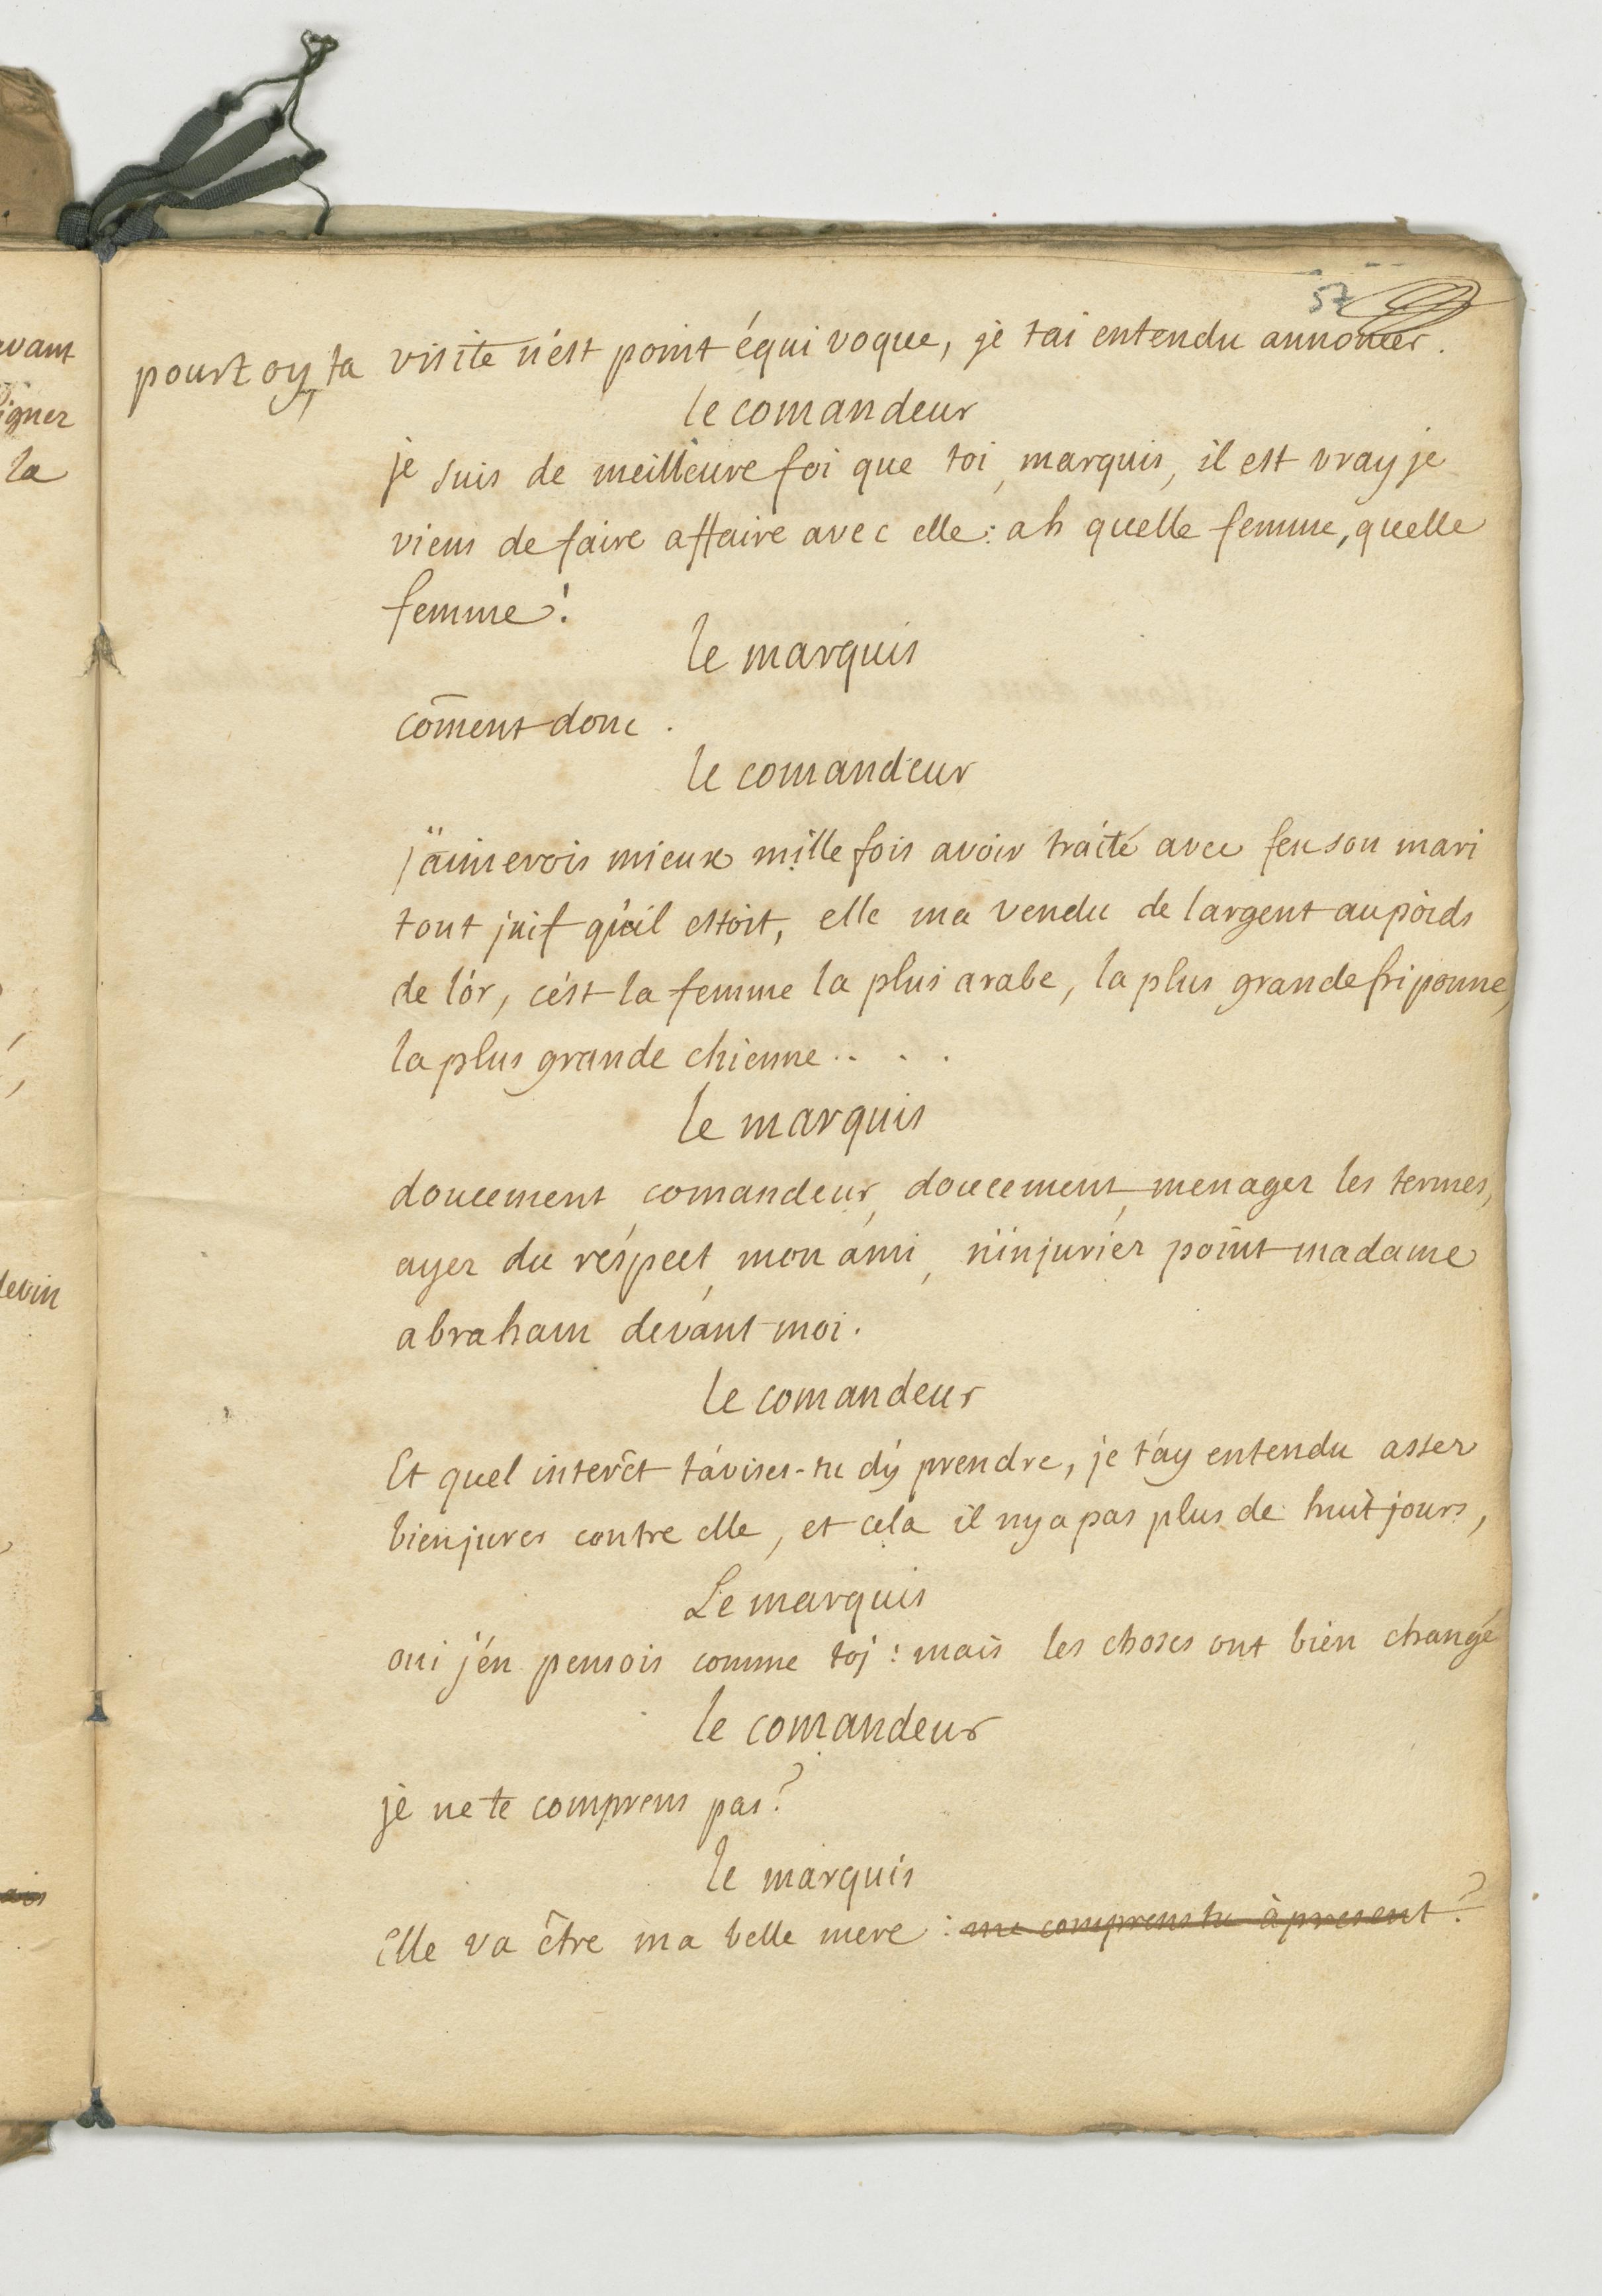 vant
igner
la
devin
57
pour toy, ta visite n'ést point équivoque, je tai entendu annoncer.
le comandeur
je suis de meilleure foi que toi, marquis, il est vray je
viens de faire affaire avec elle: ah quelle femme, quelle
femme!
le marquis
com̄ent donc.
le comandeur
j'aimerois mieux mille fois avoir traité avec feu son mari
tout juif qu'il estoit, elle ma vendu de largent au poids
de l'or, c'ést la femme la plus arabe, la plus grande friponne,
la plus grande chienne....
le marquis
doucement comandeur, doucement, menager les termes,
ayez du réspect, mon ami, n'injuriér point madame
abraham dévant moi.
le comandeur
Et quel interêt t'ávises-tu d'y prendre, je t'ay entendu assez
bien jurer contre elle, et cela il ny a pas plus de huit jours,
Le marquis
oui j'én pensois comme toj: mais les choses ont bien changé
le comandeur
je ne te comprens pas?
le marquis
Elle va être ma belle mere: me comprens tu à present?